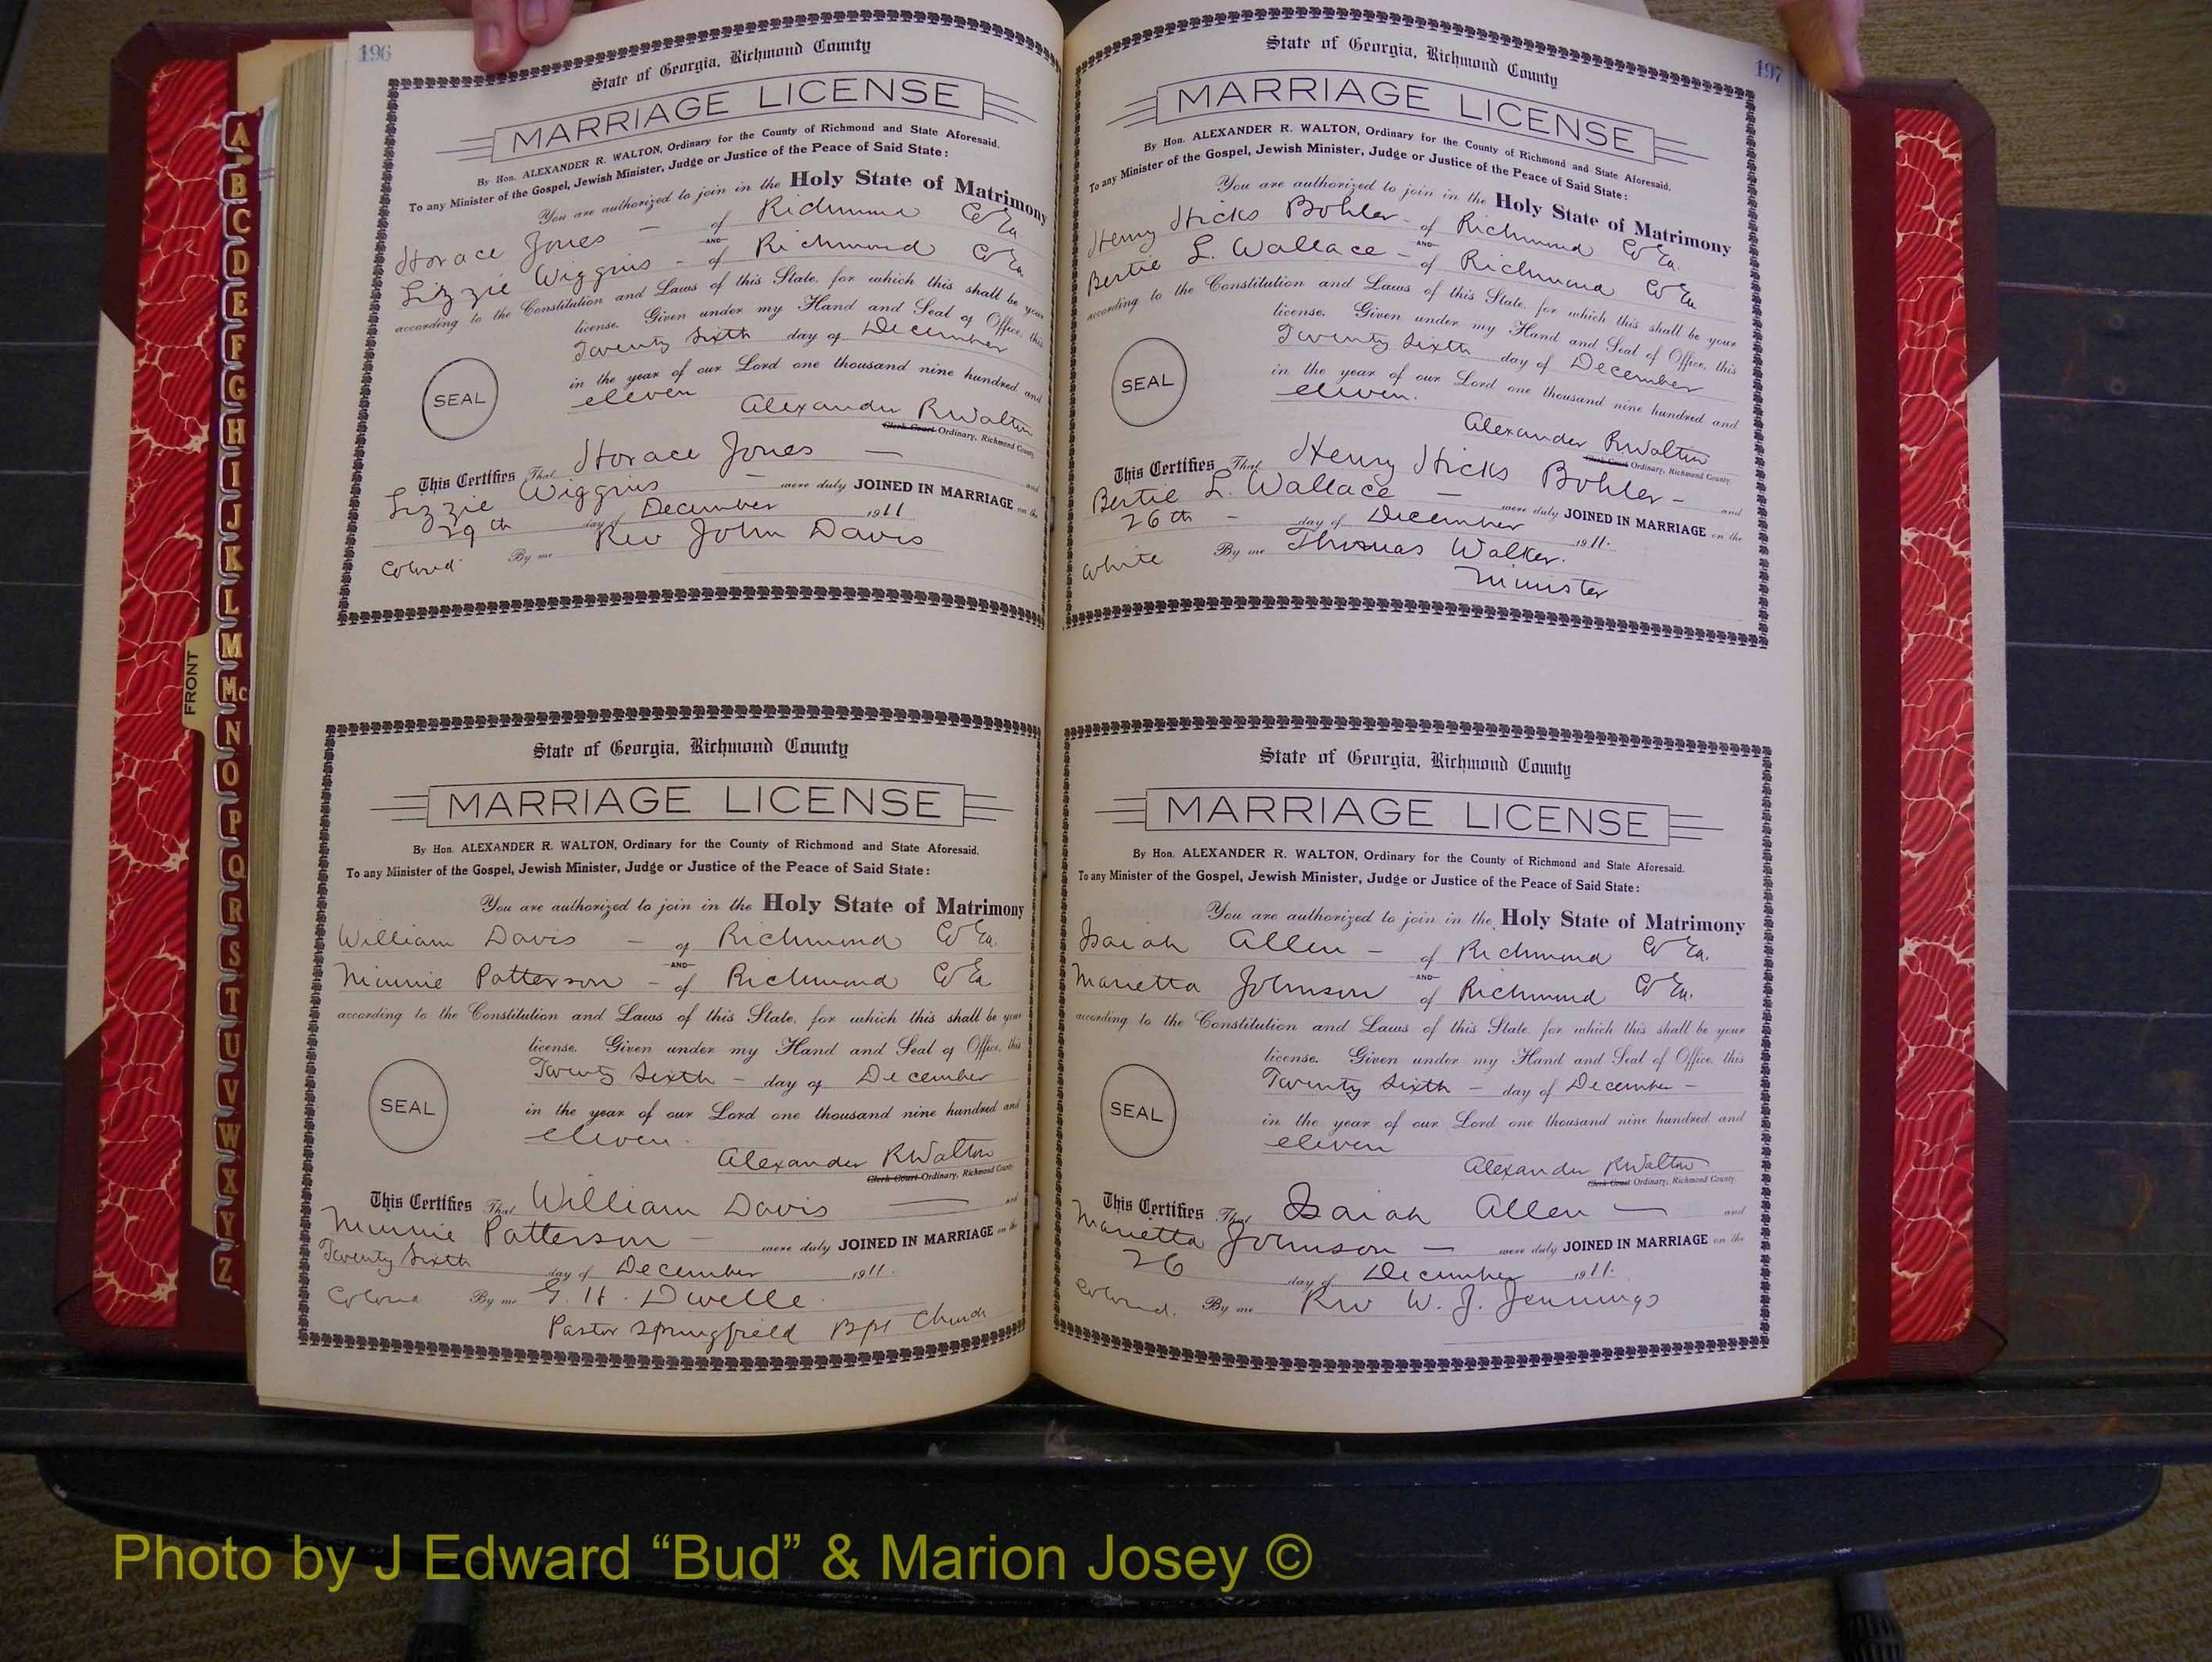 196
State of Georgia, Richmond County
MARRIAGE LICENSE
By Hon. ALEXANDER R. WALTON, Ordinary for the County of Richmond and State Aforesaid.
To any Minister of the Gospel, Jewish Minister, Judge or Justice of the Peace of Said State:
You are authorized to join in the Holy State of Matrimony
Horace Jones - of Richmond Co Ga
AND
Lizzie Wiggins - of Richmond Co Ga
according to the Constitution and Laws of this State, for which this shall be your
license. Given under my Hand and Seal of Office, this
Twenty Sixth day of December
in the year of our Lord one thousand nine hundred and
eleven
SEAL
Alexander R Walton
Clerk Court Ordinary, Richmond County
This Certifies That Horace Jones - and
Lizzie Wiggins - were duly JOINED IN MARRIAGE on the
29th day of December 1911
Colored By me Rev John Davis
State of Georgia, Richmond County
MARRIAGE LICENSE
By Hon. ALEXANDER R. WALTON, Ordinary for the County of Richmond and State Aforesaid.
To any Minister of the Gospel, Jewish Minister, Judge or Justice of the Peace of Said State:
You are authorized to join in the Holy State of Matrimony
William Davis - of Richmond Co Ga
AND
Minnie Patterson - of Richmond Co Ga
according to the Constitution and Laws of this State, for which this shall be your
license. Given under my Hand and Seal of Office, this
Twenty Sixth - day of December
in the year of our Lord one thousand nine hundred and
eleven.
SEAL
Alexander R Walton
Clerk Court Ordinary, Richmond County
This Certifies That William Davis - and
Minnie Patterson - were duly JOINED IN MARRIAGE on the
Twenty Sixth day of December 1911.
Colored By me G. H. Dwelle.
Pastor Springfield Bpt Church
197
State of Georgia, Richmond County
MARRIAGE LICENSE
By Hon. ALEXANDER R. WALTON, Ordinary for the County of Richmond and State Aforesaid.
To any Minister of the Gospel, Jewish Minister, Judge or Justice of the Peace of Said State:
You are authorized to join in the Holy State of Matrimony
Henry Hicks Bohler - of Richmond Co Ga.
AND
Bertie L. Wallace - of Richmond Co Ga
according to the Constitution and Laws of this State, for which this shall be your
license. Given under my Hand and Seal of Office, this
Twenty Sixth day of December
in the year of our Lord one thousand nine hundred and
eleven.
SEAL
Alexander R Walton
Clerk Court Ordinary, Richmond County
This Certifies That Henry Hicks Bohler - and
Bertie L. Wallace - were duly JOINED IN MARRIAGE on the
26th - day of December 1911.
White By me Thomas Walker.
Minister
State of Georgia, Richmond County
MARRIAGE LICENSE
By Hon. ALEXANDER R. WALTON, Ordinary for the County of Richmond and State Aforesaid.
To any Minister of the Gospel, Jewish Minister, Judge or Justice of the Peace of Said State:
You are authorized to join in the Holy State of Matrimony
Isaiah Allen - of Richmond Co Ga.
AND
Marietta Johnson of Richmond Co Ga.
according to the Constitution and Laws of this State, for which this shall be your
license. Given under my Hand and Seal of Office, this
Twenty Sixth - day of December -
in the year of our Lord one thousand nine hundred and
eleven
SEAL
Alexander R Walton
Clerk Court Ordinary, Richmond County.
This Certifies That Isaiah Allen - and
Marietta Johnson - were duly JOINED IN MARRIAGE on the
26 day of December 1911.
Colored. By me Rev W. J. Jennings
FRONT
A
B
C
D
E
F
G
H
I
J
K
L
M
Mc
N
O
P
Q
R
S
T
U
V
W
X
Y
Z
Photo by J Edward “Bud” & Marion Josey ©